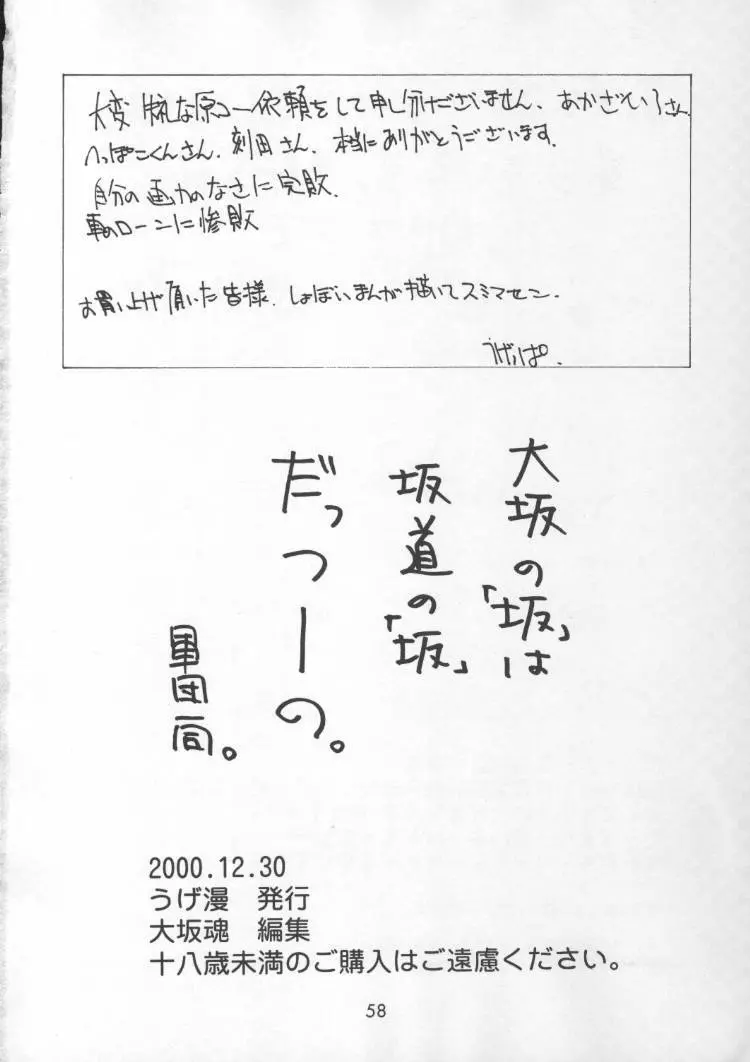 大変 無茶な原コー依頼をして申し分けございません、あかざといろさん
へっぽこくんさん、刻田さん、本当にありがとうございます。
自分の画力のなさに完敗.
車のローンに惨敗
お買い上げ頂いた皆様、しょぼいまんが描いてスミマセン.
うげっぱ.
大坂の「坂」は
坂道の「坂」
だっつーの。
軍団一同。
2000.12.30
うげ漫　発行
大坂魂　編集
十八歳未満のご購入はご遠慮ください。
58